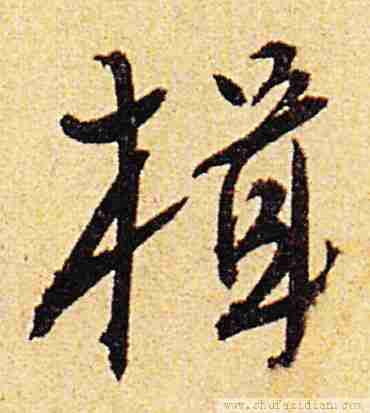 楫
www.shufazidian.com